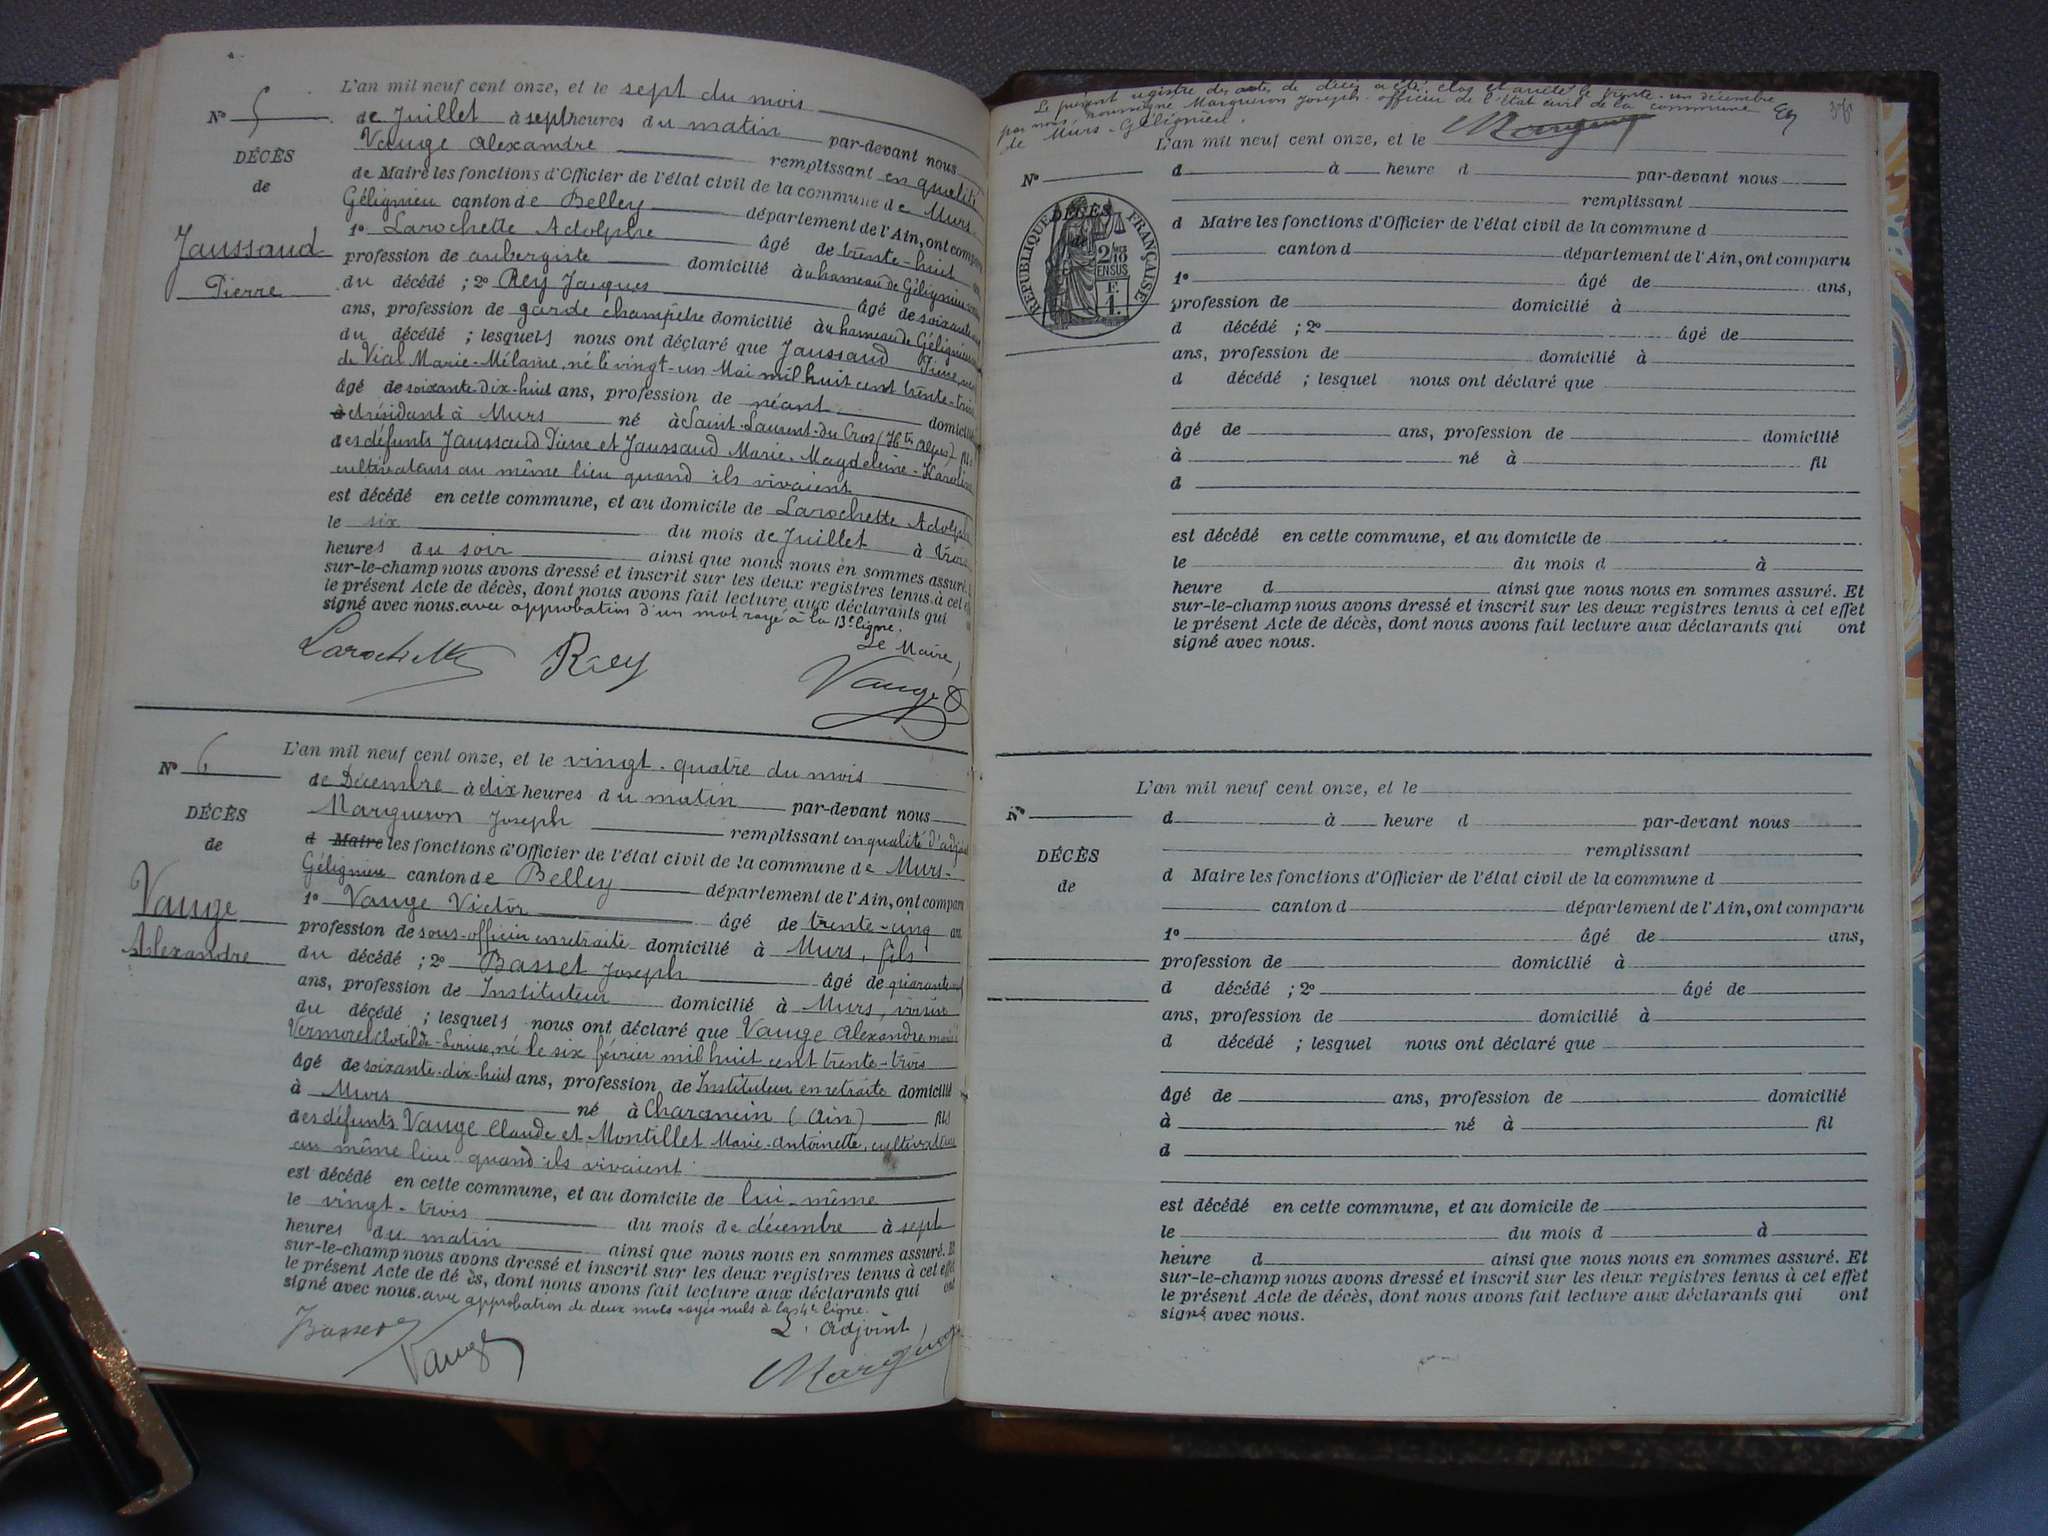 L'an mil neuf cent onze, et le sept du mois
Nº 5
de Juillet à sept heures du matin par-devant nous
Vauge Alexandre remplissant en qualité
DÉCÈS
de Maire les fonctions d'Officier de l'état civil de la commune de Murs
de
Gélignieu canton de Belley département de l'Ain, ont comparu
1º Larochette Adolphe âgé de trente-huit
Jaussaud
profession de aubergiste domicilié à hameau de Gélignieu
Pierre
du décédé ; 2º Rey Jacques âgé de soixante
ans, profession de garde champêtre domicilié à hameau de Gélignieu
du décédé ; lesquels nous ont déclaré que Jaussaud Pierre,
de Vial Marie-Mélanie, né le vingt-un Mai mil huit cent trente-trois
âgé de soixante-dix-huit ans, profession de néant domicilié
et résidant à Murs né à Saint-Laurent-du Cros (Htes Alpes) fils
des défunts Jaussaud Pierre et Jaussaud Marie-Magdeleine
cultivateurs au même lieu quand ils vivaient
est décédé en cette commune, et au domicile de Larochette Adolphe
le six du mois de Juillet à trois
heures du soir ainsi que nous nous en sommes assuré. Et
sur-le-champ nous avons dressé et inscrit sur les deux registres tenus à cet effet
le présent Acte de décès, dont nous avons fait lecture aux déclarants qui
signé avec nous. avec approbation d'un mot rayé à la 13e ligne.
Le Maire,
Larochette Rey Vauge
L'an mil neuf cent onze, et le vingt-quatre du mois
Nº 6
de Décembre à dix heures du matin par-devant nous
Margueron Joseph remplissant en qualité d'adjoint
DÉCÈS
d Maire les fonctions d'Officier de l'état civil de la commune de Murs-
de
Gélignieu canton de Belley département de l'Ain, ont comparu
1º Vauge Victor âgé de trente-cinq ans
Vauge
profession de sous-officier en retraite domicilié à Murs, fils
Alexandre
du décédé ; 2º Basset Joseph âgé de quarante
ans, profession de Instituteur domicilié à Murs, voisin
du décédé ; lesquels nous ont déclaré que Vauge Alexandre, marié
Vermorel Clotilde-Louise, né le six février mil huit cent trente-trois
âgé de soixante-dix-huit ans, profession de Instituteur en retraite domicilié
à Murs né à Charancin (Ain) fils
des défunts Vauge Claude et Montillet Marie-Antoinette, cultivateurs
au même lieu quand ils vivaient
est décédé en cette commune, et au domicile de lui-même
le vingt-trois du mois de décembre à sept
heures du matin ainsi que nous nous en sommes assuré. Et
sur-le-champ nous avons dressé et inscrit sur les deux registres tenus à cet effet
le présent Acte de dé ès, dont nous avons fait lecture aux déclarants qui ont
signé avec nous. avec approbation de deux mots rayés nuls à la 4e ligne.
L'Adjoint,
Basset Vauge Margueron
Le présent registre des actes de décès a été clos et arrêté le trente-un décembre
par nous soussigné Margueron Joseph officier de l'état civil de la commune
de Murs-Gélignieu.
Margueron
L'an mil neuf cent onze, et le
Nº
d à heure d par-devant nous
remplissant
DÉCÈS
de
RÉPUBLIQUE FRANÇAISE
2/10 EN SUS
F.
1.
d Maire les fonctions d'Officier de l'état civil de la commune d
canton d département de l'Ain, ont comparu
1º âgé de ans,
profession de domicilié à
d décédé ; 2º âgé de
ans, profession de domicilié à
d décédé ; lesquel nous ont déclaré que
âgé de ans, profession de domicilié
à né à fil
d
est décédé en cette commune, et au domicile de
le du mois d à
heure d ainsi que nous nous en sommes assuré. Et
sur-le-champ nous avons dressé et inscrit sur les deux registres tenus à cet effet
le présent Acte de décès, dont nous avons fait lecture aux déclarants qui ont
signé avec nous.
L'an mil neuf cent onze, et le
Nº
d à heure d par-devant nous
remplissant
DÉCÈS
d Maire les fonctions d'Officier de l'état civil de la commune d
de
canton d département de l'Ain, ont comparu
1º âgé de ans,
profession de domicilié à
d décédé ; 2º âgé de
ans, profession de domicilié à
d décédé ; lesquel nous ont déclaré que
âgé de ans, profession de domicilié
à né à fil
d
est décédé en cette commune, et au domicile de
le du mois d à
heure d ainsi que nous nous en sommes assuré. Et
sur-le-champ nous avons dressé et inscrit sur les deux registres tenus à cet effet
le présent Acte de décès, dont nous avons fait lecture aux déclarants qui ont
signé avec nous.